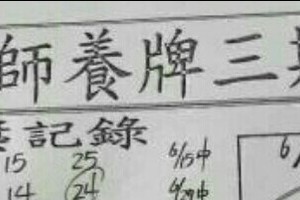 師養牌三
記錄
15 25 6/15中 6/
14 24 6/29中